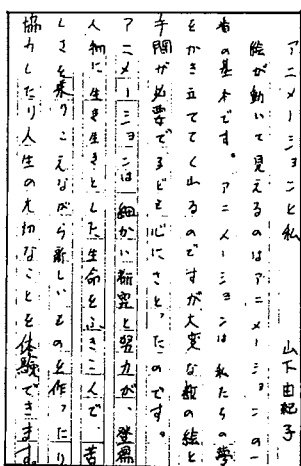 アニメーションと私
山下由紀子
絵が動いて見えるのはアニメーションの一
番の基本です。アニメーションは私たちの夢
をかき立ててくれるのですが大変な数の絵と
手間が必要であると心にさとったのです。
アニメーションは細かい研究と努力が、登場
人物に生き生きとした生命をふきこんで苦
しさを乗りこえながら新しいものを作ったり
協力したり人生の大切なことを体験できます。